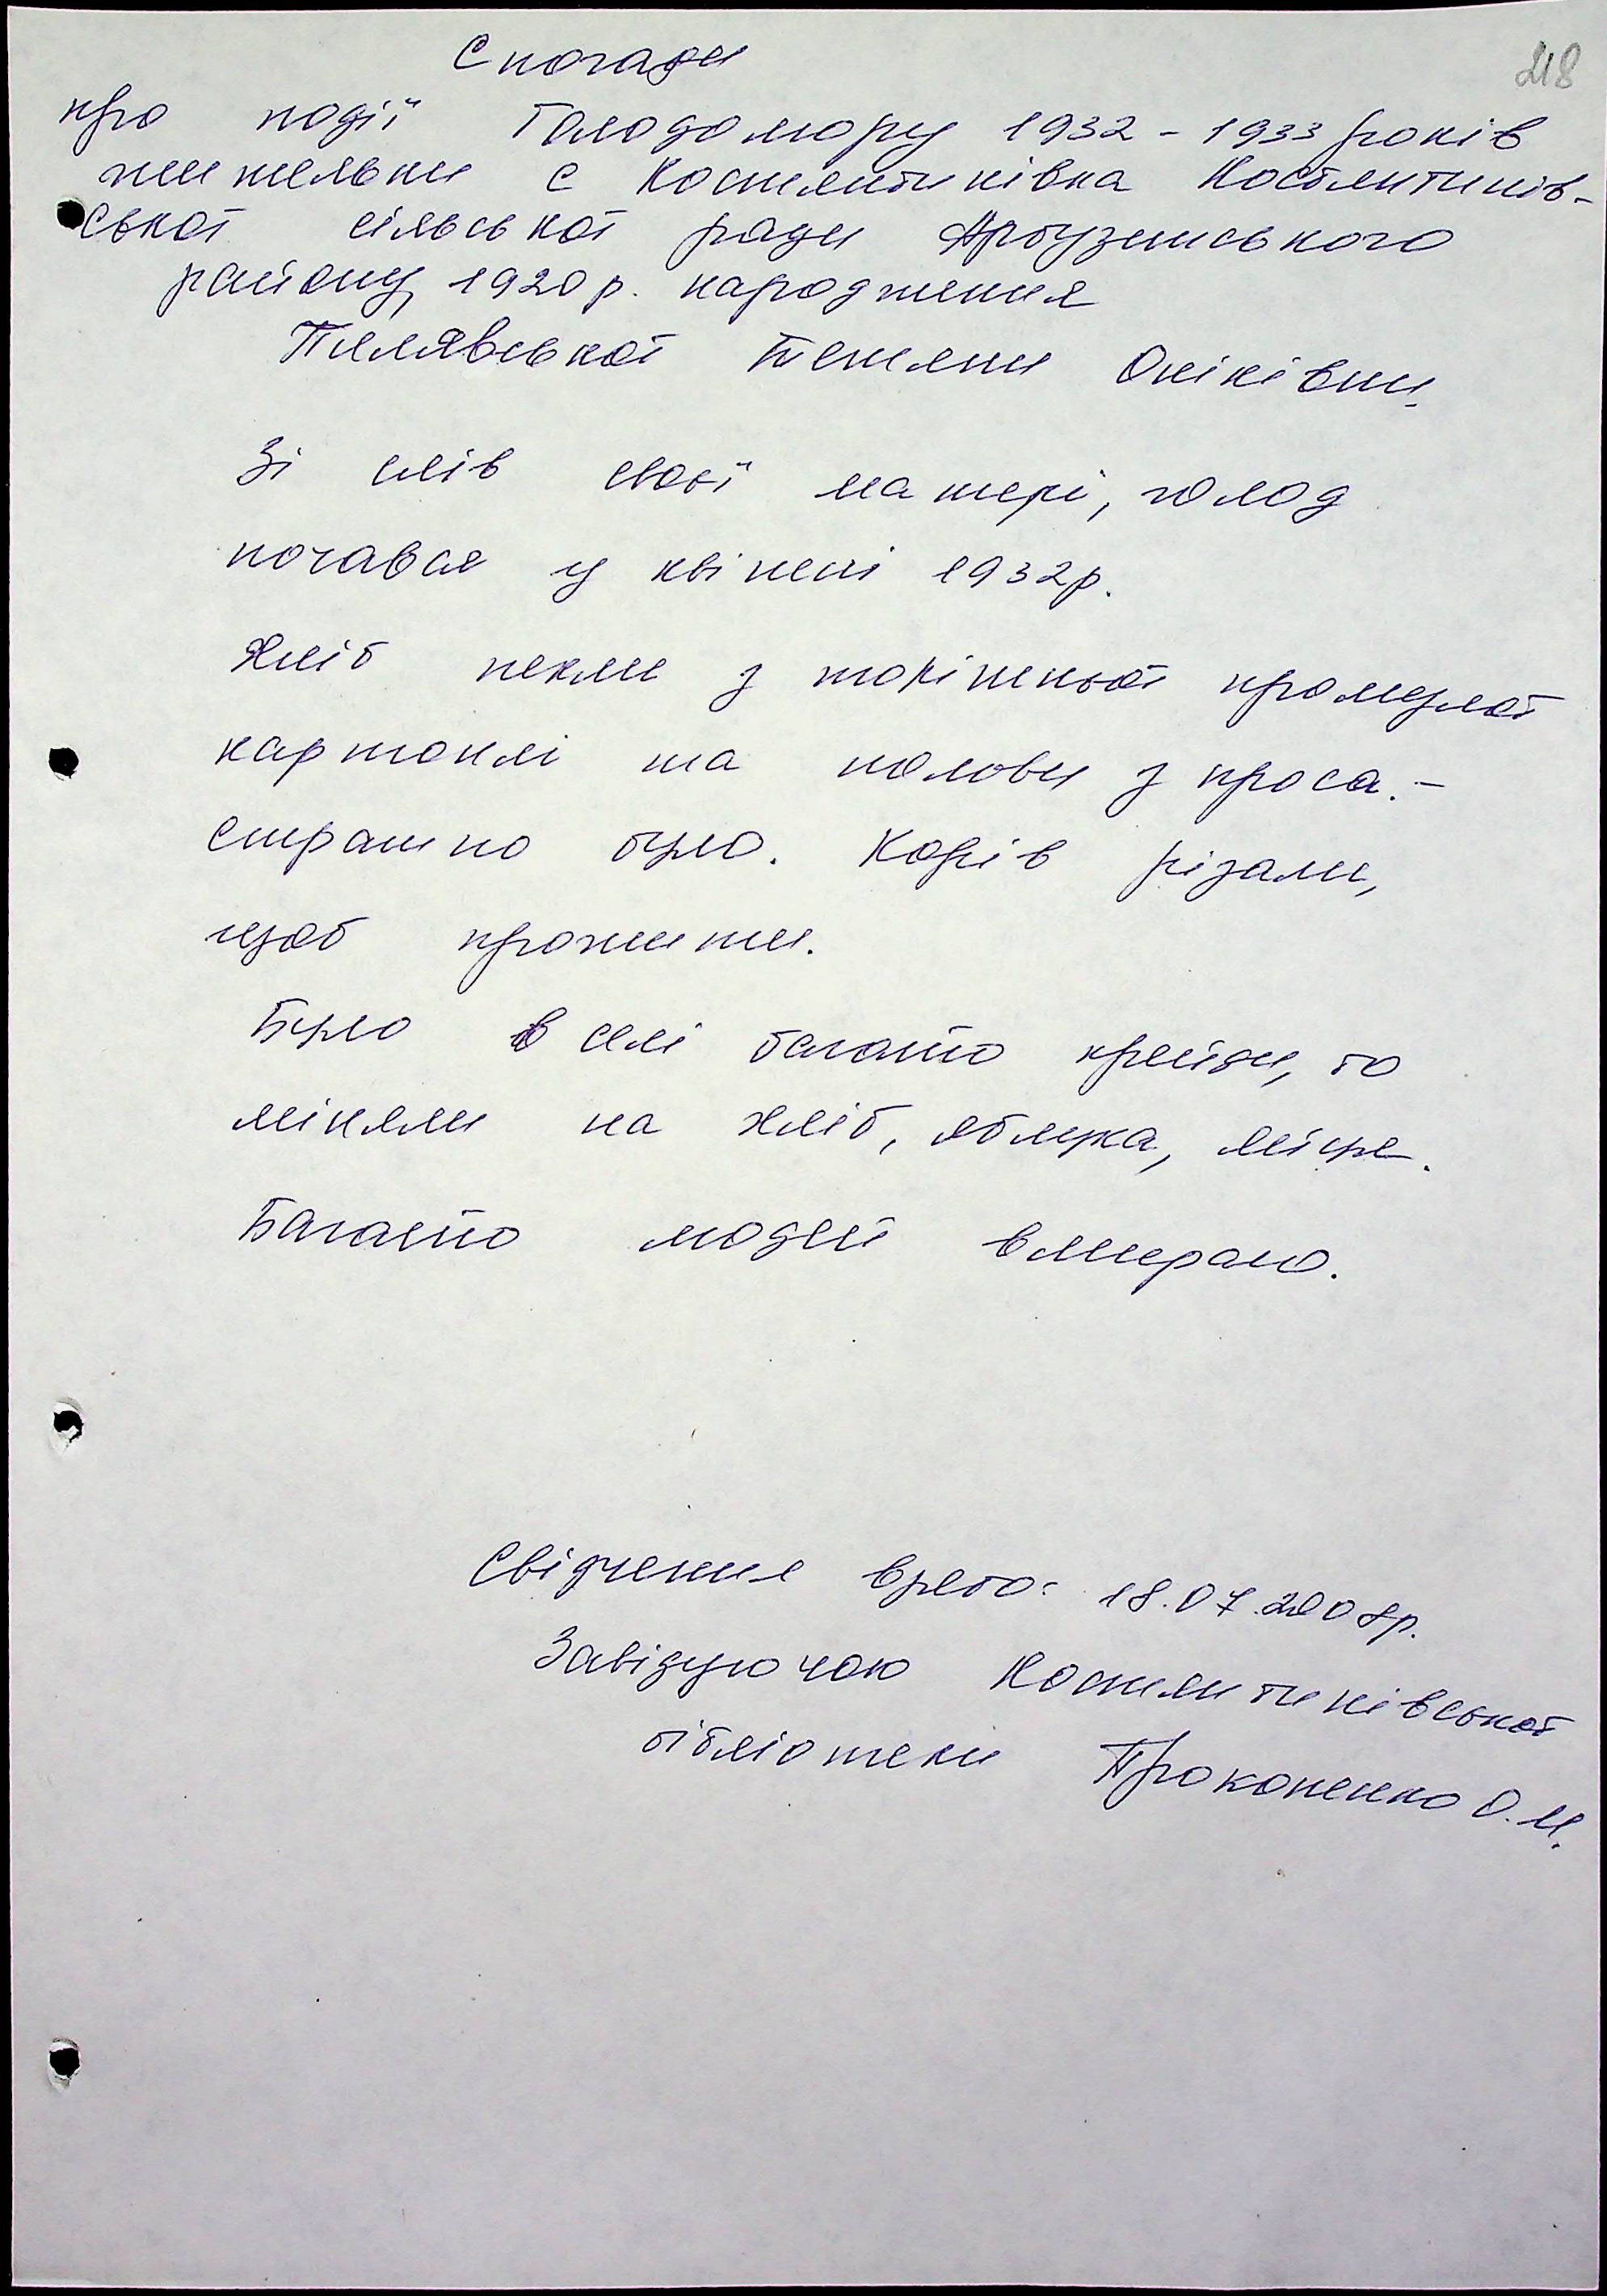 218
Спогади
про події Голодомору 1932 - 1933 років
жительки с Костянтинівка Костянтинів-
ської сільської ради Арбузинського
району, 1920 р. народження
Пилявської Тетяни Оникіївни.
Зі слів своєї матері, голод
почався у квітні 1932р.
Хліб пекли з торішньої промерзлої
картоплі та полови з проса. -
Страшно було. Корів різали,
щоб прожити.
Було в селі багато крейди, то
міняли на хліб, яблука, яйця.
Багато людей вмерало.
Свідчення взято: 18.07.2008р.
Завідуючою Костянтинівської
бібліотеки Прокопенко О.М.